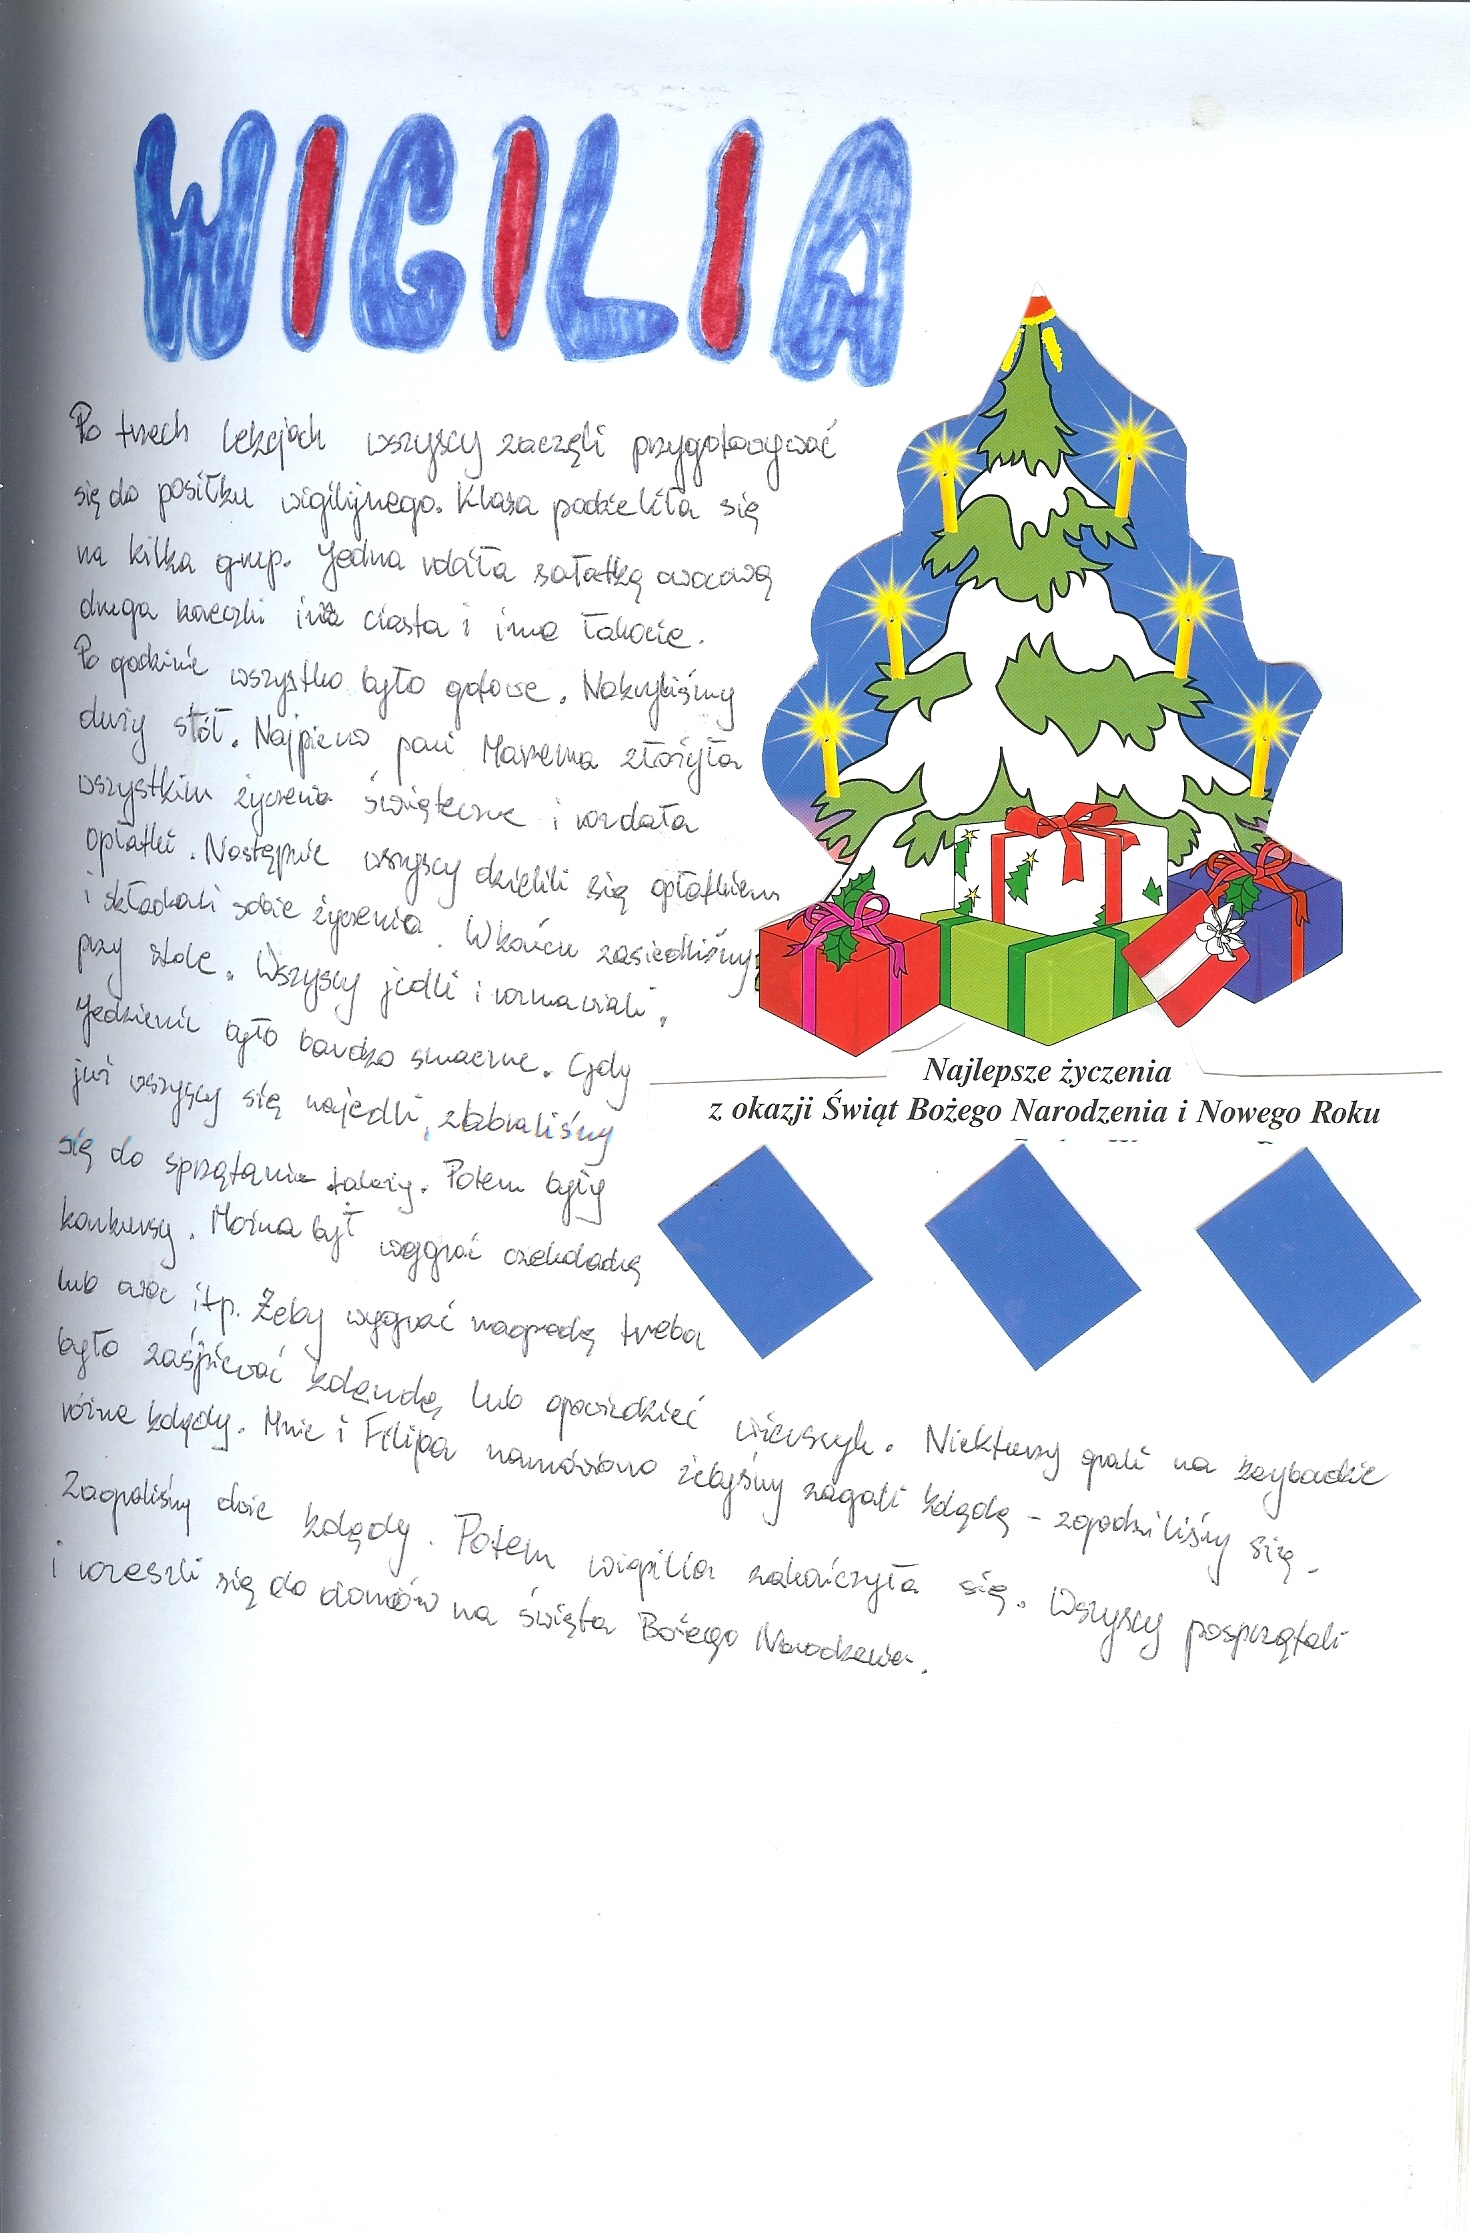 WIGILIA
Po trzech lekcjach wszyscy zaczęli przygotowywać
się do posiłku wigilijnego. Klasa podzieliła się
na kilka grup. Jedna robiła sałatkę owocową
druga koreczki inna ciasta i inne łakocie.
Po godzinie wszystko było gotowe. Nakryliśmy
duży stół. Najpierw pani Marzena złożyła
wszystkim życzenia świąteczne i rozdała
opłatki. Następnie wszyscy dzielili się opłatkiem
i składali sobie życzenia. W końcu zasiedliśmy
przy stole. Wszyscy jedli i rozmawiali.
Jedzenie było bardzo smaczne. Gdy
już wszyscy się najedli, zabraliśmy
się do sprzątania talerzy. Potem były
konkursy. Można był wygrać czekoladkę
lub owoc itp. Żeby wygrać nagrodę trzeba
było zaśpiewać kolęndę, lub opowiedzieć wierszyk. Niekturzy grali na keybadzie
różne kolędy. Mnie i Filipa namówiono żebyśmy zagali kolędę - zgodziliśmy się.
Zagraliśmy dwie kolędy. Potem wigilia zakończyła się. Wszyscy posprzątali
i rozeszli się do domów na święta Bożego Narodzenia.
Najlepsze życzenia
z okazji Świąt Bożego Narodzenia i Nowego Roku